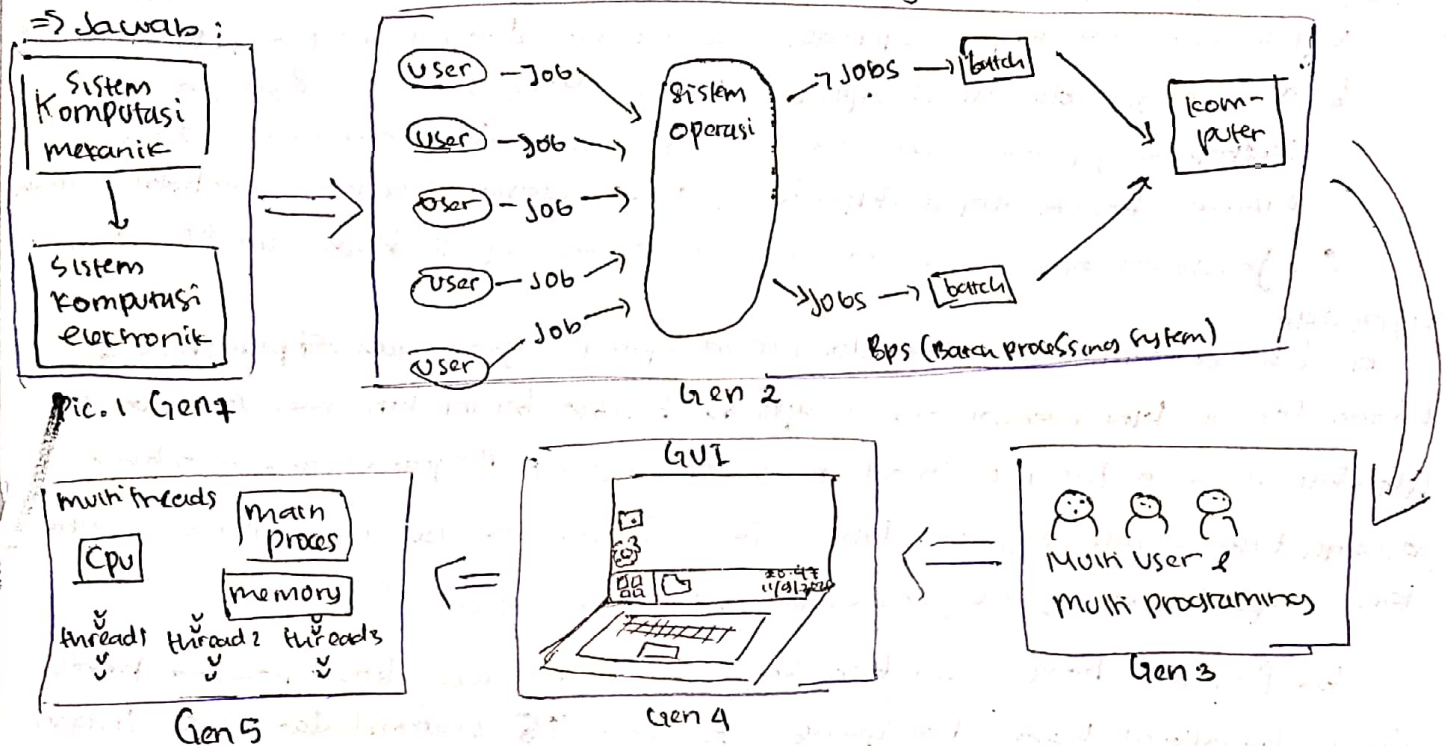 => Jawab :
Sistem
Komputasi
mekanik
Sistem
Komputasi
elektronik
Pic. 1 Gen 1
User - Job
User - Job
User - Job
User - Job
User Job
Sistem
Operasi
Jobs
batch
Jobs
batch
Kom-
puter
Bps (Batch processing system)
Gen 2
Multi User &
Multi programing
Gen 3
GUI
20.47
Gen 4
Multi threads
Cpu
Main
Proces
memory
thread 1 thread 2 thread 3
Gen 5